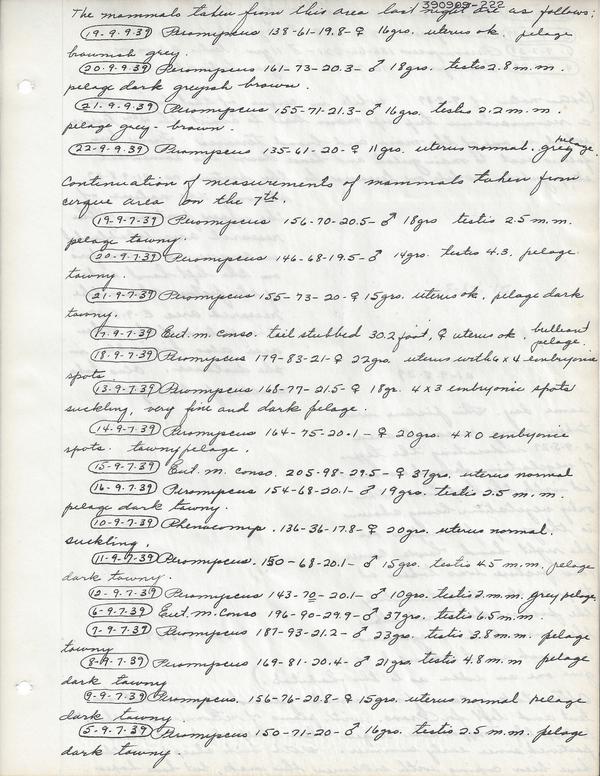 390909-222
The mammals taken from this area last night are as follows:
19-9-9.39 Peromyscus 138-61-19.8-♀ 16grs. uterus ok. pelage
brownish grey.
20-9-9.39 Peromyscus 161-73-20.3-♂ 18grs. testis 2.8 m.m.
pelage dark greyish brown.
21-9-9.39 Peromyscus 155-71-21.3-♂ 16grs. testis 2.2 m.m.
pelage grey-brown.
22-9-9.39 Peromyscus 135-61-20-♀ 11grs. uterus normal. grey pelage.
Continuation of measurements of mammals taken from
cirque area on the 7th.
19-9-7.39 Peromyscus 156-70-20.5-♂ 18grs testis 2.5 m.m.
pelage towny.
20-9-7.39 Peromyscus 146-68-19.5-♂ 14grs. testis 4.3. pelage
towny.
21-9-7.39 Peromyscus 155-73-20-♀ 15grs. uterus ok. pelage dark
towny.
17-9-7.39 Eut. m. Conso. tail stubbed 30.2 foot, ♀ uterus ok. pelage.
18.9-7.39 Peromyscus 179-83-21-♀ 27grs. uterus with 6 x 4 embryonic
spots.
13-9-7.39 Peromyscus 168-77-21.5-♀ 18gr. 4x3 embryonic spots
suckling, very fine and dark pelage.
14-9-7.39 Peromyscus 164-75-20.1-♀ 20grs. 4x0 embryonic
spots. towny pelage.
15-9-7.39 Eut. m. conso. 205-98-29.5-♀ 37grs. uterus normal
16-9-7.39 Peromyscus 154-68-20.1-♂ 19grs. testis 2.5 m.m.
pelage dark towny.
10-9-7.39 Phenacomys. 136-36-17.8-♀ 20grs. uterus normal.
suckling.
11-9-7.39 Peromyscus. 150-68-20.1-♂ 15grs. testis 4.5 m.m. pelage
dark towny.
12-9-7.39 Peromyscus 143-70-20.1-♂ 10grs. testis 2.m.m. grey pelage.
6-9-7.39 Eut. m. Conso 196-90-29.9-♂ 37grs. testis 6.5 m.m.
7-9-7.39 Peromyscus 187-93-21.2-♂ 23grs. testis 3.8 m.m. pelage
towny
8-9-7.39 Peromyscus 169-81-20.4-♂ 21grs. testis 4.8 m.m pelage
dark towny
9-9-7.39 Peromyscus. 156-76-20.8-♀ 15grs. uterus normal pelage
dark towny.
5-9-7.39 Peromyscus 150-71-20-♂ 16grs. testis 2.5 m.m. pelage
dark towny.